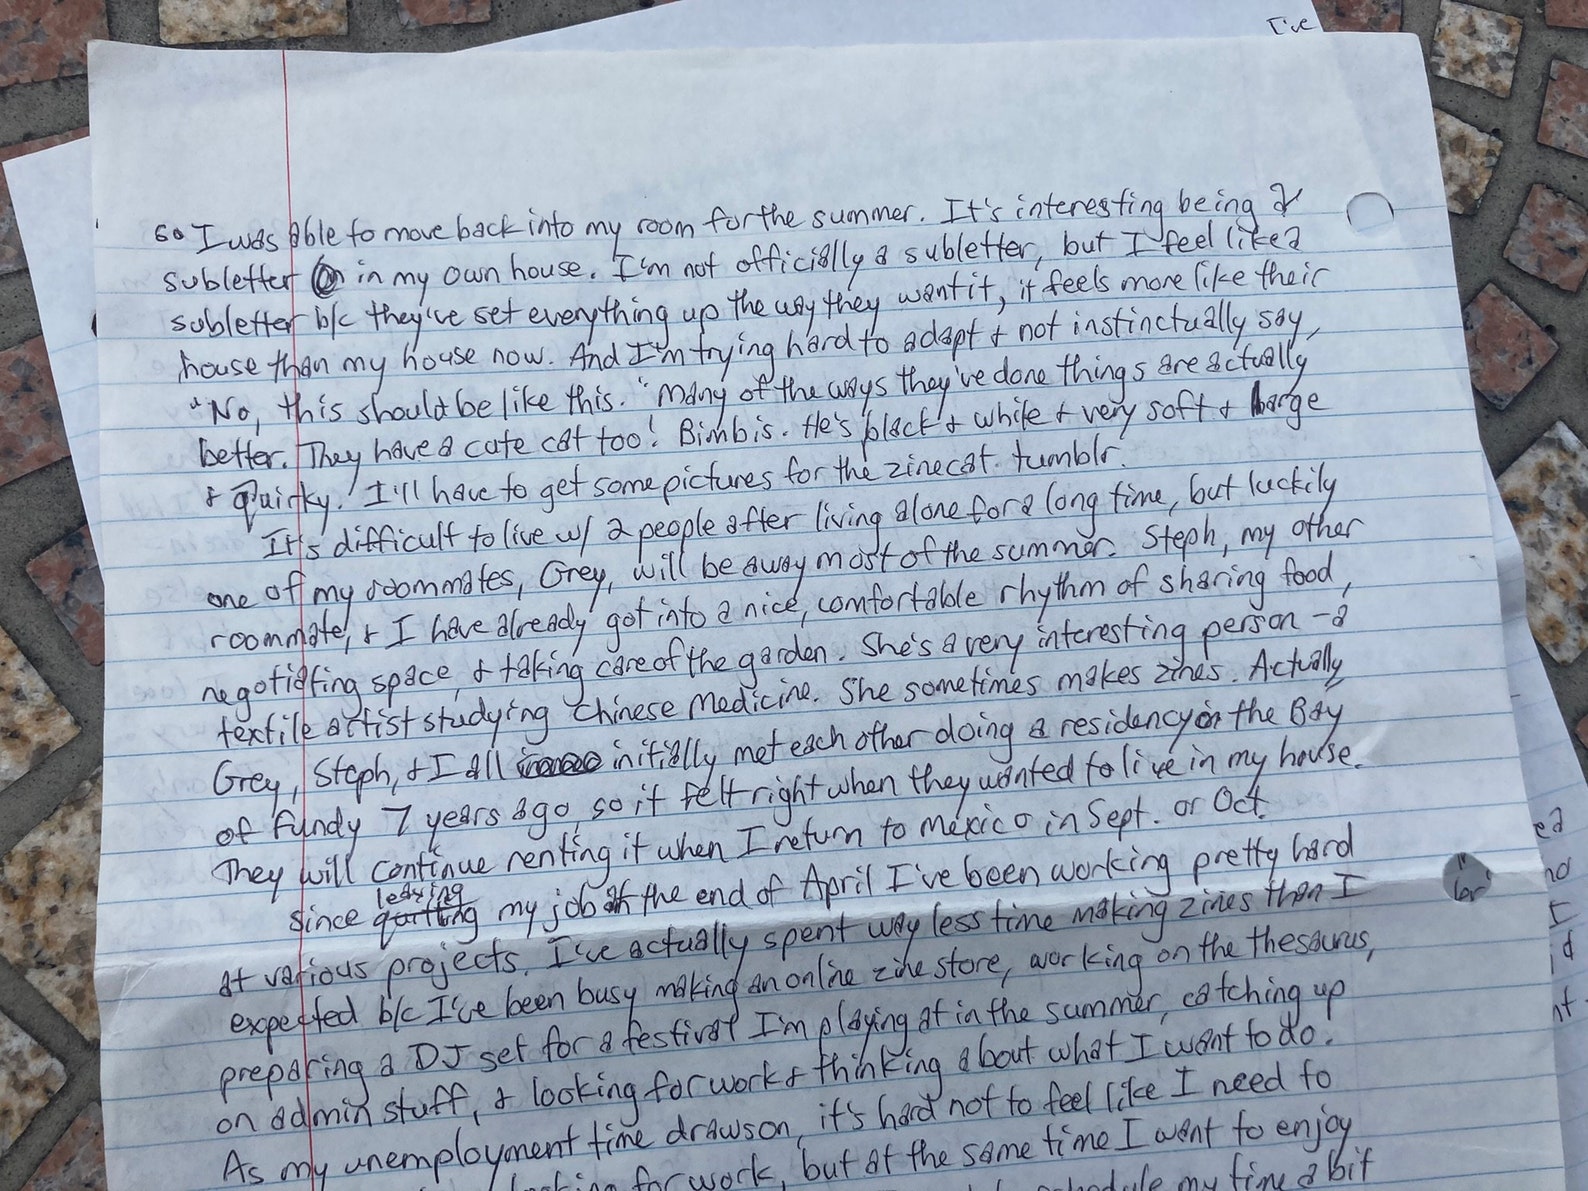 I've
so I was able to move back into my room for the summer. It's interesting being a
subletter in my own house. I'm not officially a subletter, but I feel like a
subletter b/c they've set everything up the way they want it, it feels more like their
house than my house now. And I'm trying hard to adapt + not instinctually say,
"No, this should be like this." Many of the ways they've done things are actually
better. They have a cute cat too! Bimbis. He's black + white + very soft + large
+ quirky! I'll have to get some pictures for the zinecat tumblr.
It's difficult to live w/ 2 people after living alone for a long time, but luckily
one of my roommates, Grey, will be away most of the summer. Steph, my other
roommate, + I have already got into a nice, comfortable rhythm of sharing food,
negotiating space, + taking care of the garden. She's a very interesting person - a
textile artist studying Chinese Medicine. She sometimes makes zines. Actually
Grey, Steph, + I all initially met each other doing a residency in the Bay
of Fundy 7 years ago, so it felt right when they wanted to live in my house.
They will continue renting it when I return to México in Sept. or Oct.
Since quitting leaving my job at the end of April I've been working pretty hard
at various projects. I've actually spent way less time making zines than I
expected b/c I've been busy making an online zine store, working on the thesaurus,
preparing a DJ set for a festival I'm playing at in the summer, catching up
on admin stuff, + looking for work + thinking about what I want to do.
As my unemployment time draws on, it's hard not to feel like I need to
looking for work, but at the same time I want to enjoy
schedule my time a bit